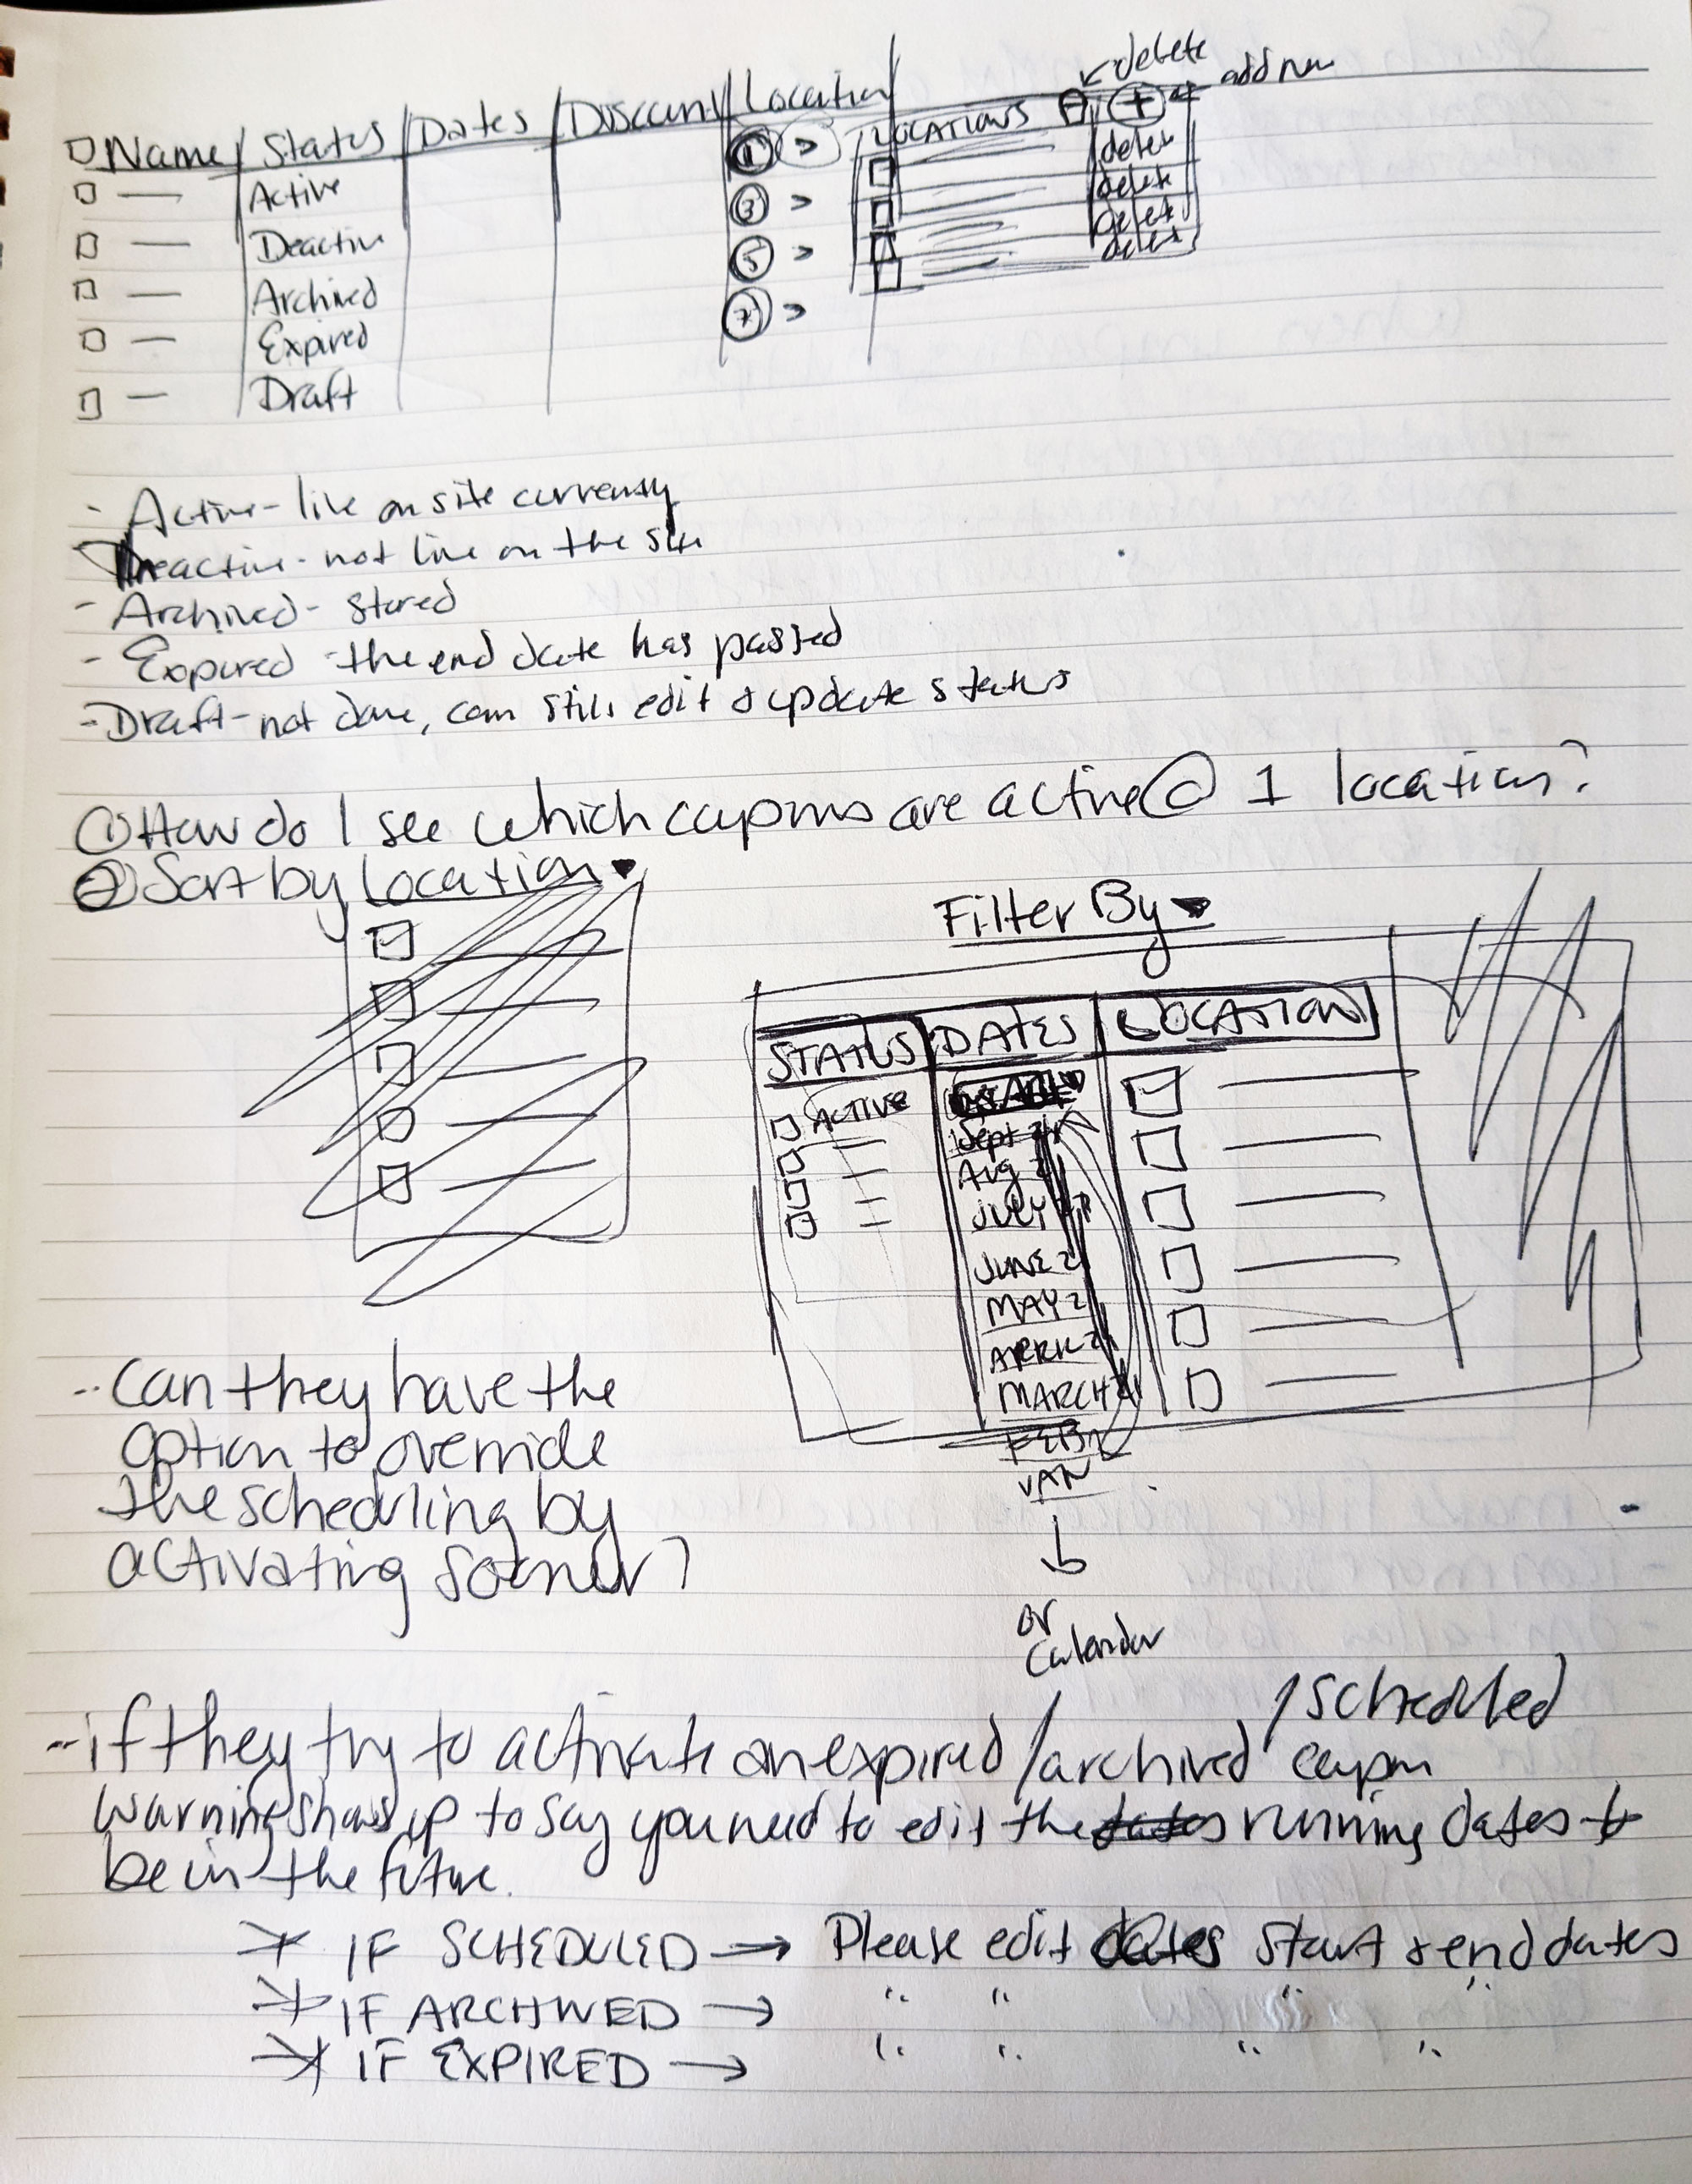 Name Status Dates Discount Location
← delete
add new
LOCATIONS - +
Active
Deactive
Archived
Expired
Draft
1 >
3 >
5 >
7 >
delete
delete
delete
delete
- Active - live on site currently
Deactive - not live on the site
- Archived - stored
- Expired - the end date has passed
- Draft - not done, can still edit & update status
① How do I see which coupons are active @ 1 location?
② Sort by Location
Filter By
STATUS DATES LOCATION
ACTIVE
Sept 21
Aug 2
JULY
JUNE 2
MAY 2
APRIL 21
MARCH 21
FEB
JAN
↓
or
Calendar
- Can they have the
option to override
the scheduling by
activating sooner?
- if they try to activate an expired / archived / scheduled coupon
warning shows up to say you need to edit the dates running dates to
be in the future.
* IF SCHEDULED → Please edit dates start & end dates
* IF ARCHIVED → " " " "
* IF EXPIRED → " " " "